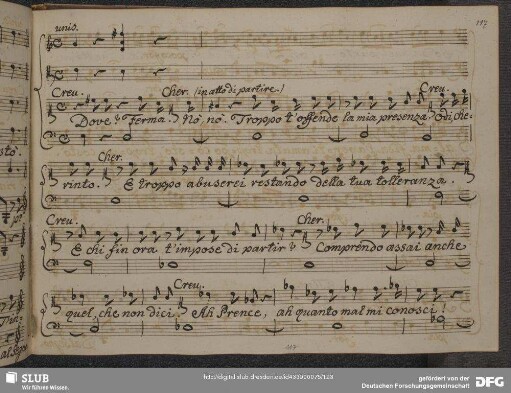 unis.
117
Creu. Cher. (in atto di partire.) Creu.
Dove? Ferma. Nò, nò. Troppo t'offende la mia presenza. Odi che-
Cher.
rinto. E troppo abuserei restando della tua tolleranza.
Creu. Cher.
E chi fin ora t'impose di partir? Comprendo assai anche
Creu.
quel, che non dici. Ah Prence, ah quanto mal mi conosci!
117
SLUB
Wir führen Wissen.
gefördert von der
Deutschen Forschungsgemeinschaft
DFG